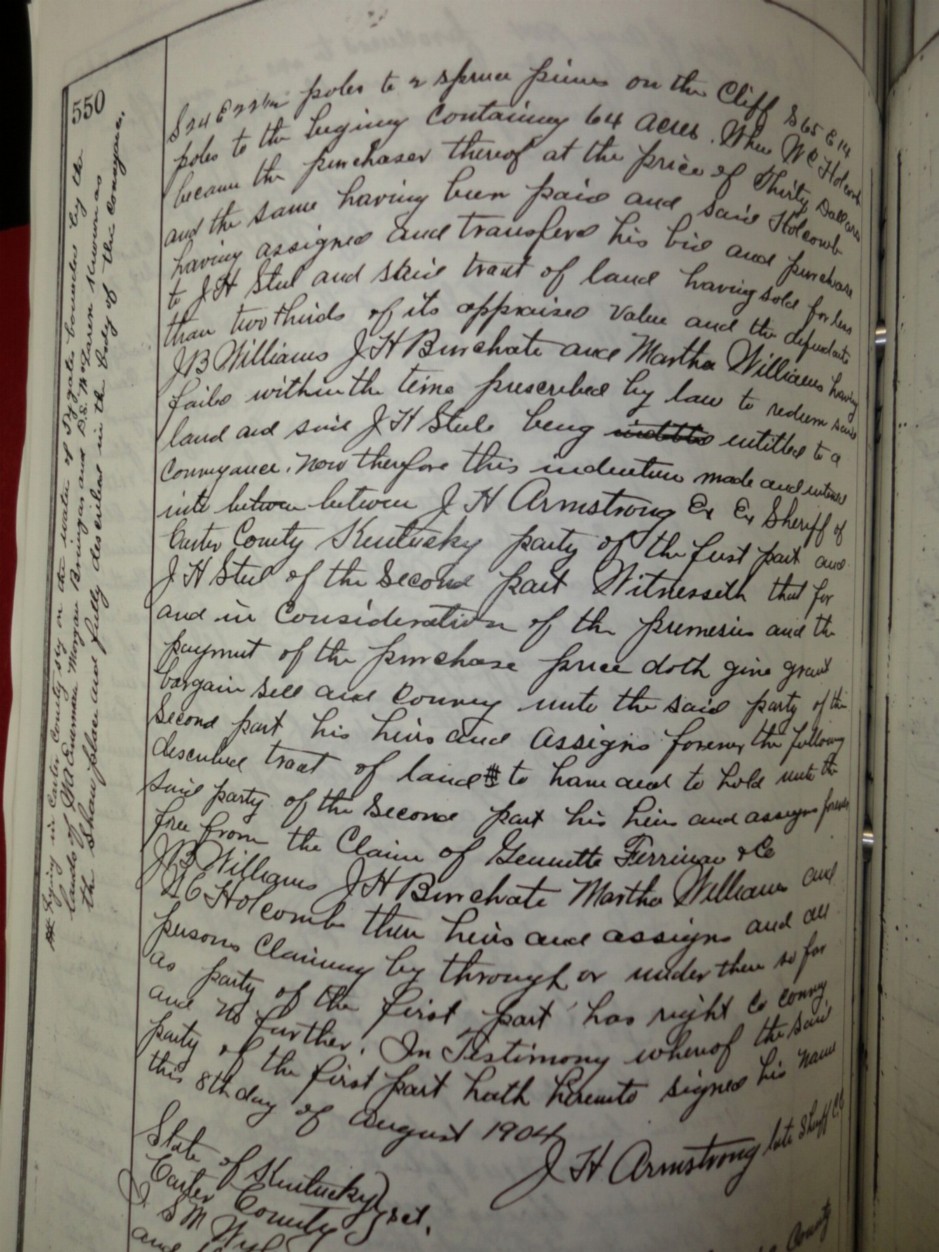 550
S24 E 22 1/2 poles to 2 spruce pines on the Cliff S65 E 14
poles to the beginy Containing 64 acres. When WC Holcomb
became the purchaser thereof at the price of Thirty Dollars
and the same having been paid and said Holcomb
having assigned and transfered his bid and purchase
to J H Steel and said tract of land having sold for less
than two thirds of its appraised value and the defendants
JB Williams J H Burchate and Martha Williams having
failed within the time prescribed by law to redeem said
land and said J H Steele being entitled to a
Conveyance. Now therefore this indenture made and entered
into between between J H Armstrong Ex Ex Sheriff of
Carter County Kentucky party of the first part and
J H Steel of the Second part Witnesseth that for
and in Consideration of the premises and the
payment of the purchase price doth give grant
bargain sell and convey unto the said party of the
Second part his heirs and assigns forever the following
described tract of land # to have and to hold unto the
said party of the second part his heirs and assigns forever
free from the Claim of Gennette Ferriman & Co
JB Williams J H Burchate Martha Williams and
WC Holcomb their heirs and assigns and all
persons Claiming by through or under them so far
as party of the first part has right to convey
and no further. In Testimony whereof the said
party of the first part hath hereunto signed his name
this 8th day of August 1904
J H Armstrong late Shuff CC
State of Kentucky
Carter County } sct.
I. SM
and
County
# Lying in Carter County Ky on the water of Tygarts bounded by the
lands of Morgan Brinegar and known as
the Shaw place and fully described in the body of this Conveyance.